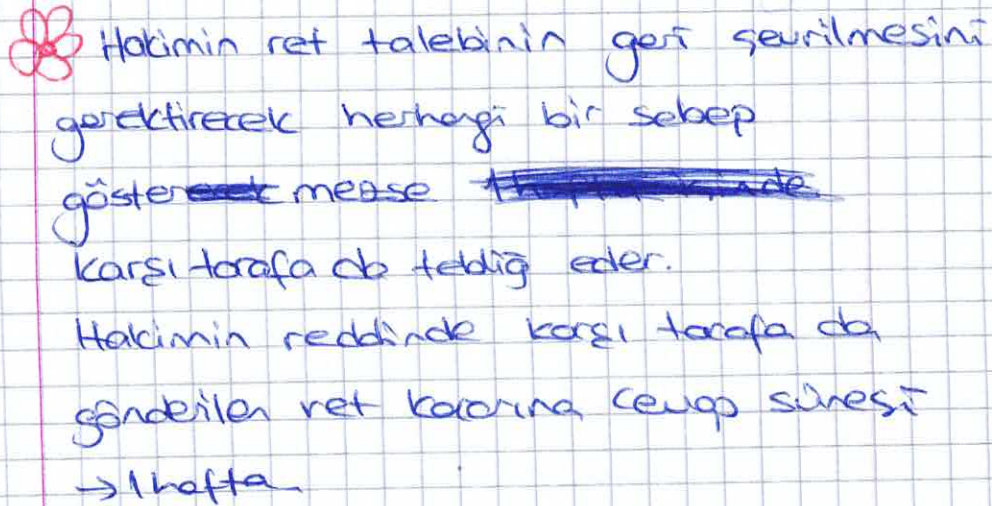 Hakimin ret talebinin geri çevrilmesini
gerektirecek herhangi bir sebep
göstermezse
karşı tarafa da tebliğ eder.
Hakimin reddinde karşı tarafa da
gönderilen ret kararına cevap süresi
→ 1 hafta